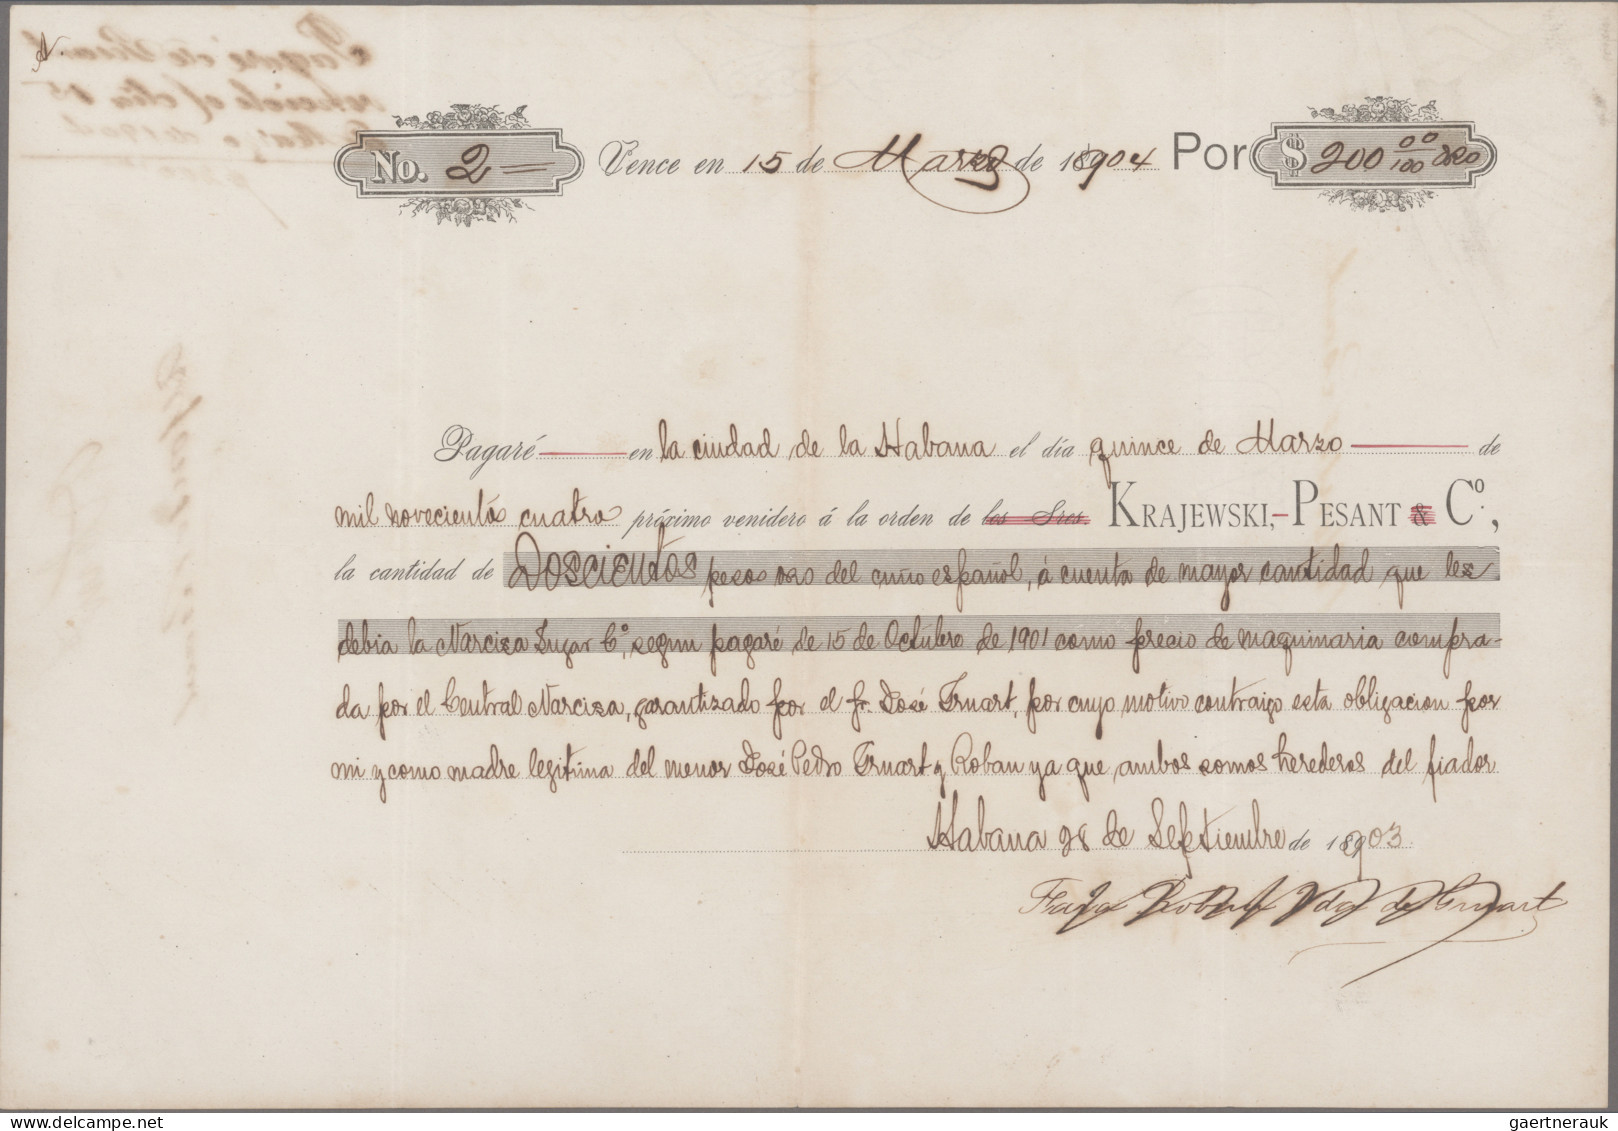 No. 2 Vence en 15 de Marzo de 18904 Por $ 200 00/100 oro
Pagaré en la ciudad de la Habana el día quince de Marzo de
mil novecientos cuatro próximo venidero á la orden de los Sres. KRAJEWSKI,-PESANT & Cº.,
la cantidad de Doscientos pesos oro del cuño español, á cuenta de mayor cantidad que les
debia la Narcisa Sugar Cº. segun pagaré de 15 de Octubre de 1901 como precio de maquinaria compra-
da por el Central Narcisa, garantizado por el Sr. José Fruart, por cuyo motivo contraigo esta obligacion por
mi y como madre legitima del menor José Pedro Fruart y Robau ya que ambos somos herederos del fiador
Habana 28 de Septiembre de 18903
Vda de
gaertnerauk